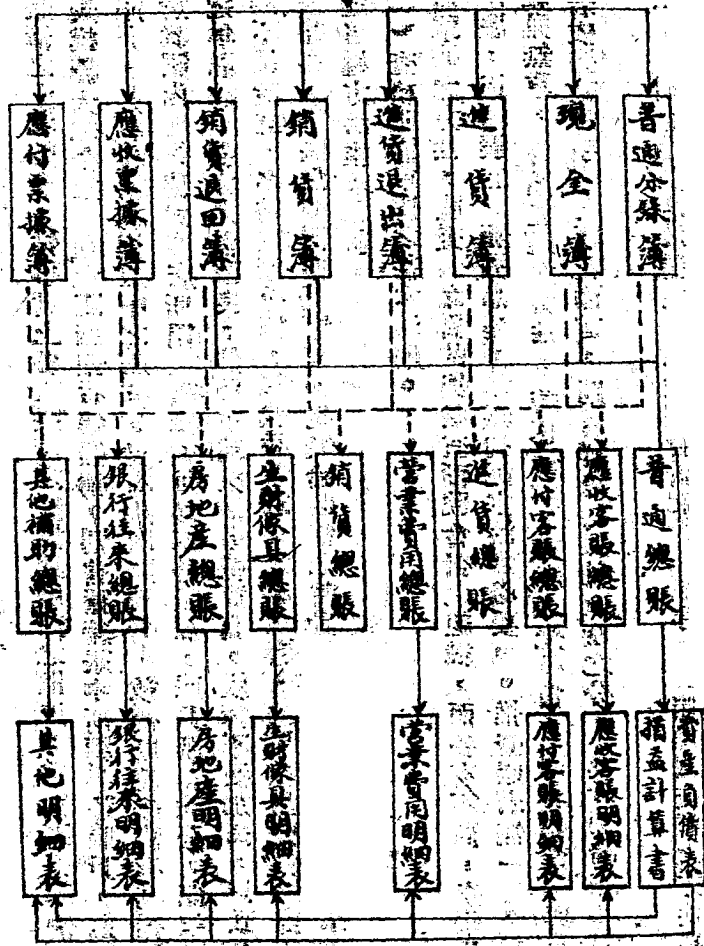 普通分錄簿
現金簿
進貨簿
進貨退出簿
銷貨簿
銷貨退回簿
應收票據簿
應付票據簿
普通總賬
應收客賬總賬
應付客賬總賬
進貨總賬
營業費用總賬
銷貨總賬
生財傢具總賬
房地產總賬
銀行往來總賬
其他補助總賬
資產負債表
損益計算書
應收客賬明細表
應付客賬明細表
營業費用明細表
生財傢具明細表
房地產明細表
銀行往來明細表
其他明細表